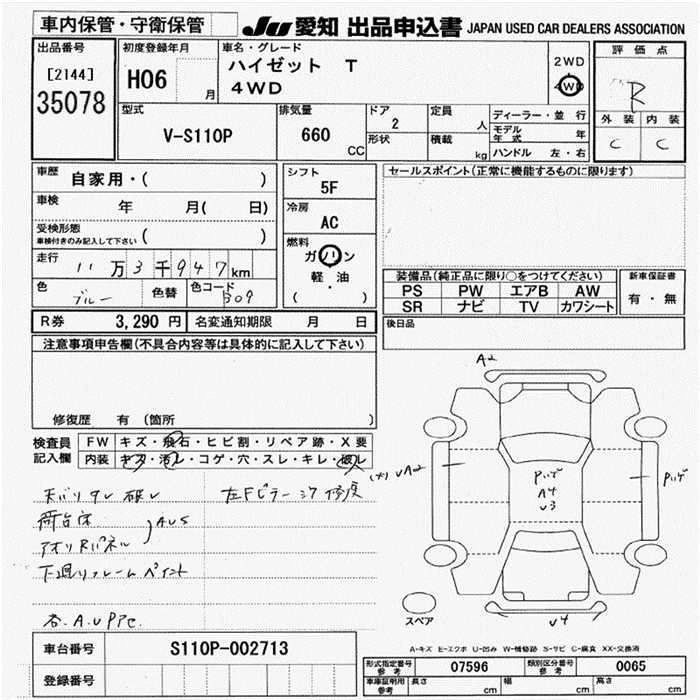 車内保管・守衛保管
JU 愛知 出品申込書 JAPAN USED CAR DEALERS ASSOCIATION
出品番号
[2144]
35078
初度登録年月
H06 月
車名・グレード
ハイゼット T
4WD
2WD
4WD
評価点
R
外装 内装
C C
型式
V-S110P
排気量
660 CC
ドア
2
形状
定員
人
積載
kg
ディーラー・並行
モデル年式 年
ハンドル 左・右
車歴 自家用・( )
車検 年 月( 日)
受検形態
車検付きのみ記入して下さい ( )
走行 11万3千947km
色 ブルー 色替 色コード B09
シフト
5F
冷房
AC
燃料
ガソリン
軽・油
( )
セールスポイント(正常に機能するものに限ります)
装備品(純正品に限り○をつけてください)
PS PW エアB AW
SR ナビ TV カワシート
新車保証書
有・無
後日品
R券 3,290円 名変通知期限 月 日
注意事項申告欄(不具合内容等は具体的に記入して下さい)
修復歴 有(箇所 )
検査員
記入欄
FW キズ・飛石・ヒビ割・リペア跡・X要
内装 キズ・汚レ・コゲ・穴・スレ・キレ・破レ
天バリ タレ 破レ
左Fピラー シワ 修復
荷台床
アオリ Rパネル
AUS
下廻リフレーム ペイント
各.A.U
A2
UA2
A4
U3
U4
スペア
A-キズ E-エクボ U-凹み W-補修跡 S-サビ C-腐食 XX-交換済
車台番号 S110P-002713
登録番号
形式指定番号 参考 07596 類別区分番号 参考 0065
車庫証明用 参考 長さ cm 幅 cm 高さ cm